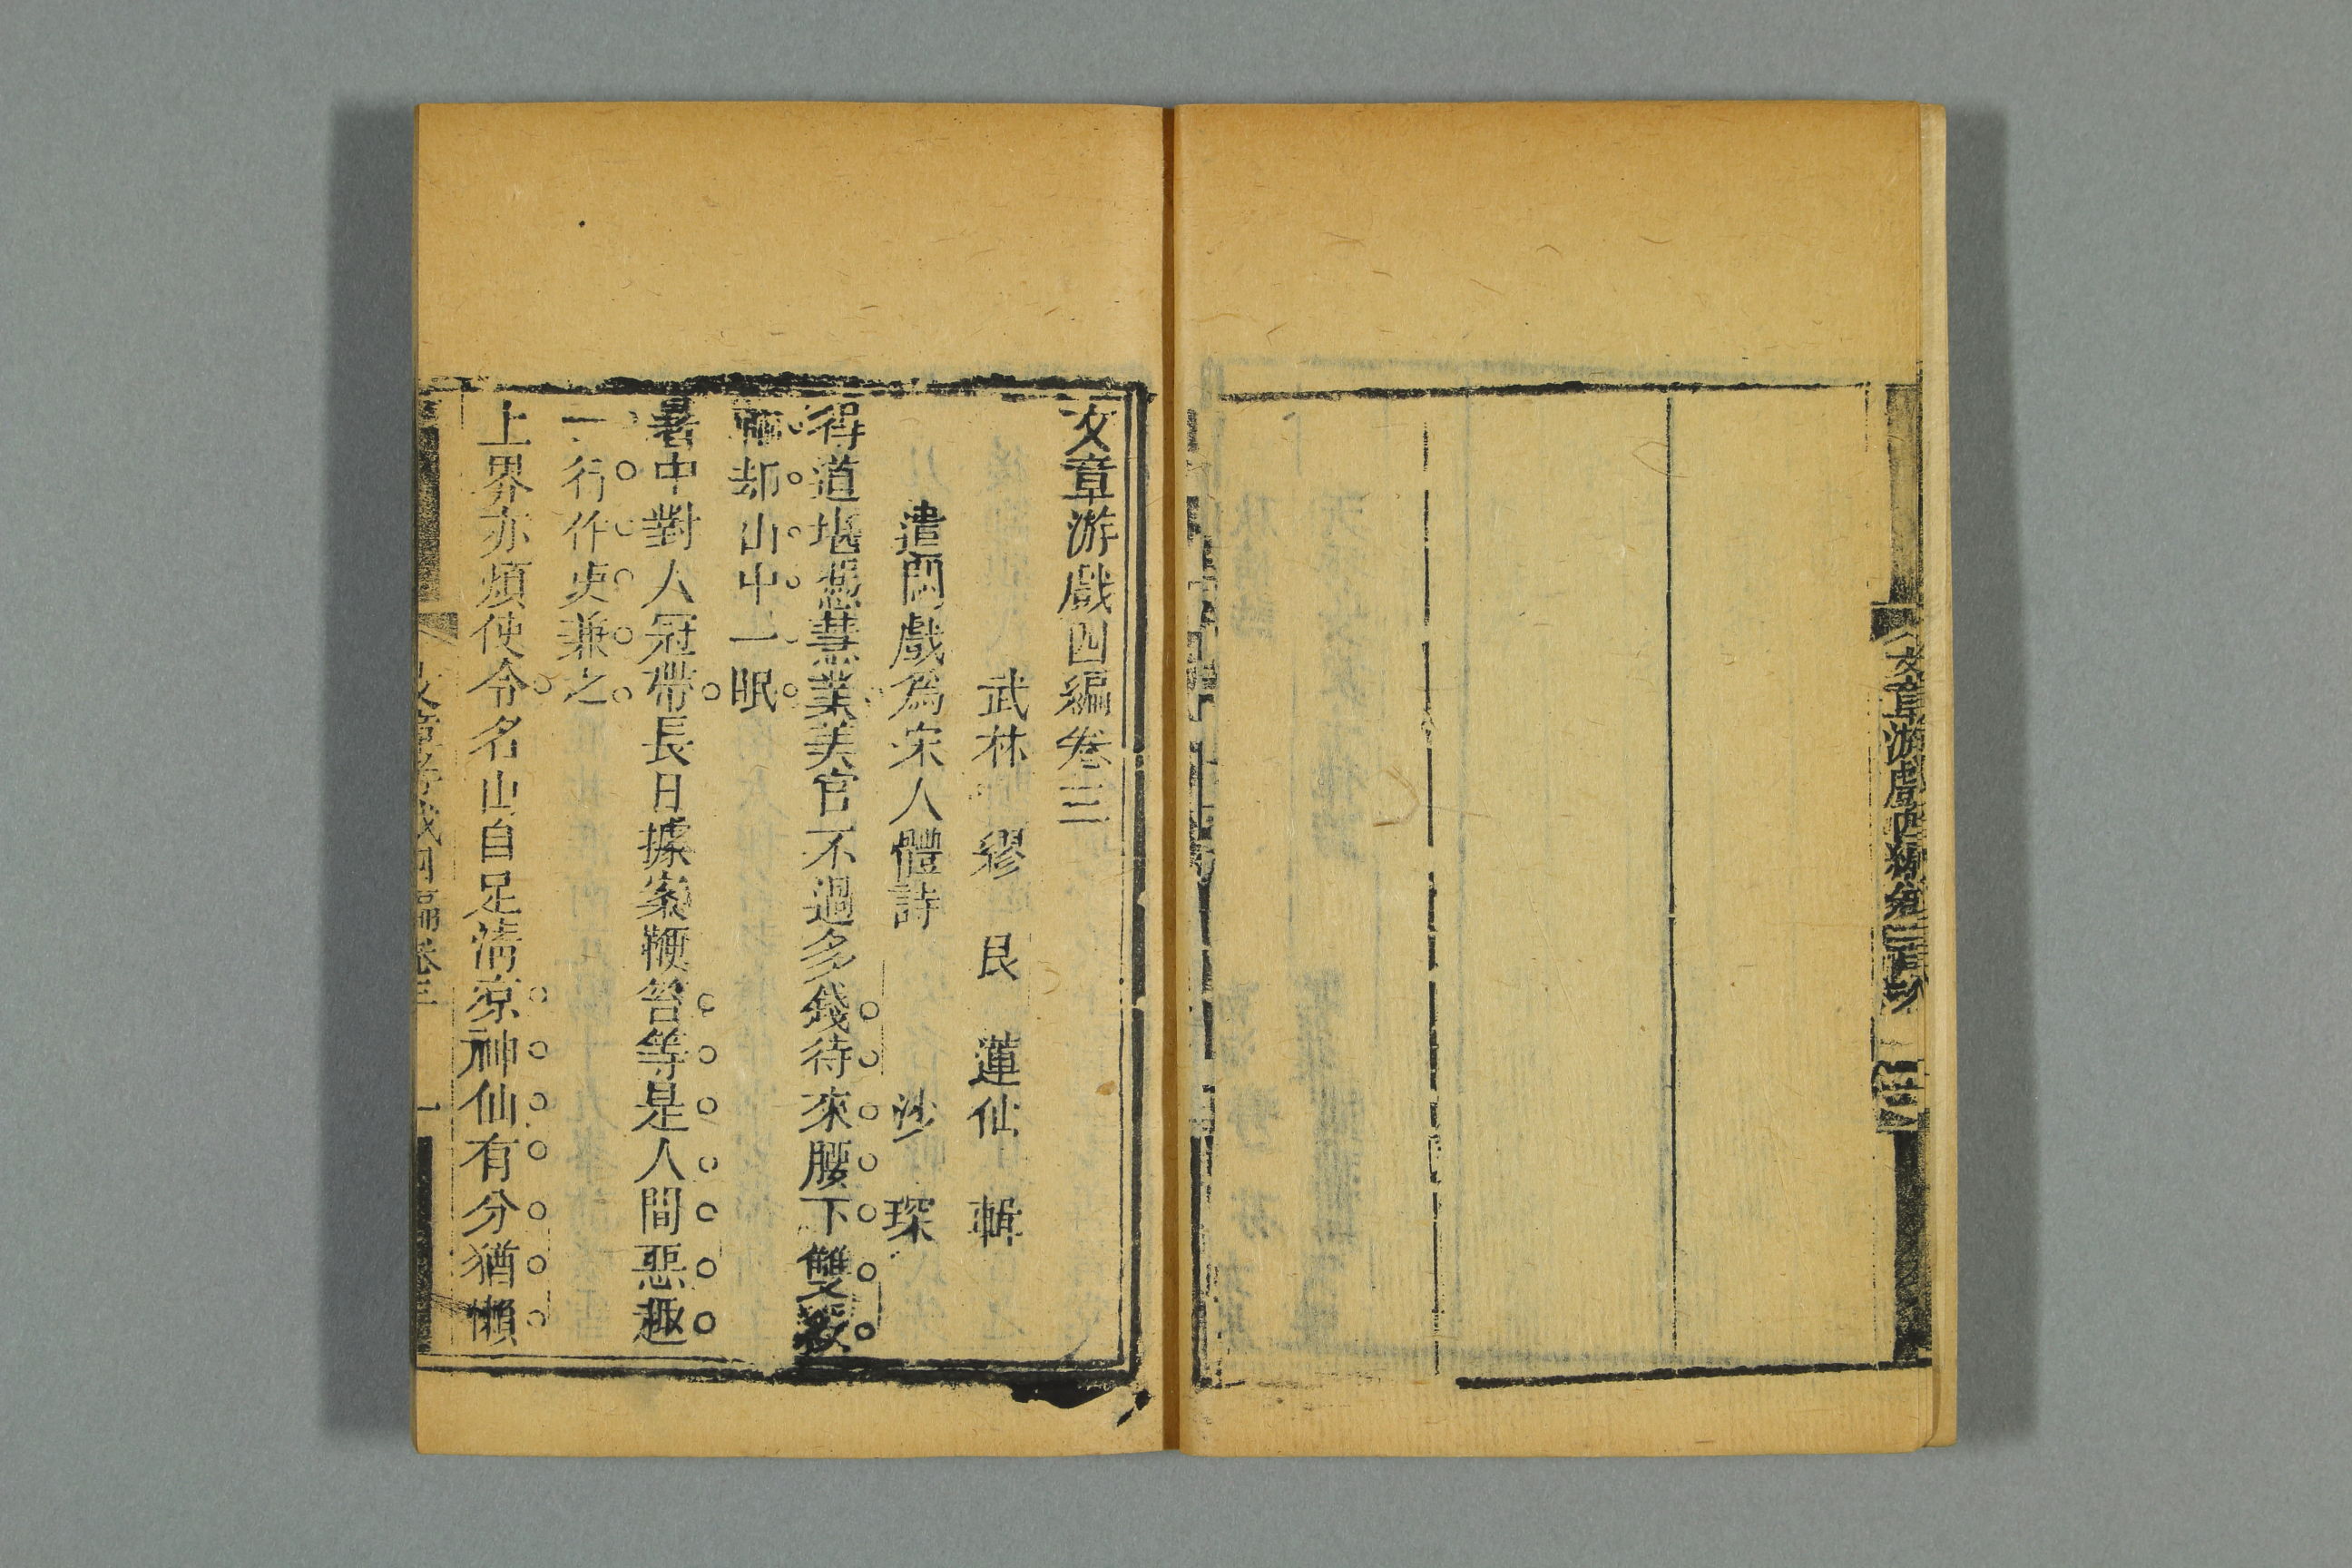 文章游戲四編卷三
武林 繆 艮 蓮仙 輯
遣悶戲為宋人體詩 沙 琛
得道堪憑慧業美官不過多錢待來腰下雙
却山中一眠
暑中對人冠帶長日據案鞭笞等是人間惡趣
一行作吏兼之
上界亦煩使令名山自足清涼神仙有分猶懶
文章游戲四編卷三 一
文章游戲四編卷三